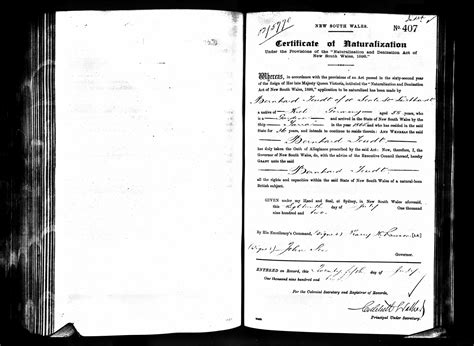 NEW SOUTH WALES.
No 407
Certificate of Naturalization
Under the Provisions of the "Naturalization and Denization Act of
New South Wales, 1898."
Whereas, in accordance with the provisions of an Act passed in the sixty-second year
of the Reign of Her late Majesty Queen Victoria, intituled the "Naturalization and Denization
Act of New South Wales, 1898," application to be naturalized has been made by
Bernhard of
a native of Kiel Germany aged years, is
a and arrived in the State of New South Wales by the
ship in the year and who has resided in the said
State for years, and intends to continue to reside therein: And Whereas the said
Bernhard
has duly taken the Oath of Allegiance prescribed by the said Act: Now, therefore, I, the
Governor of New South Wales, do, with the advice of the Executive Council thereof, hereby
Grant unto the said
Bernhard
all the rights and capacities within the said State of New South Wales of a natural-born
British subject.
Given under my Hand and Seal, at Sydney, in New South Wales aforesaid,
this eighteenth day of July One thousand
nine hundred and two.
By His Excellency's Command, (Signed) Harry H. Rawson [L.S.]
(Signed) John See Governor.
Entered on Record, this Twenty fifth day of July
One thousand nine hundred and two
For the Colonial Secretary and Registrar of Records,
Principal Under Secretary.